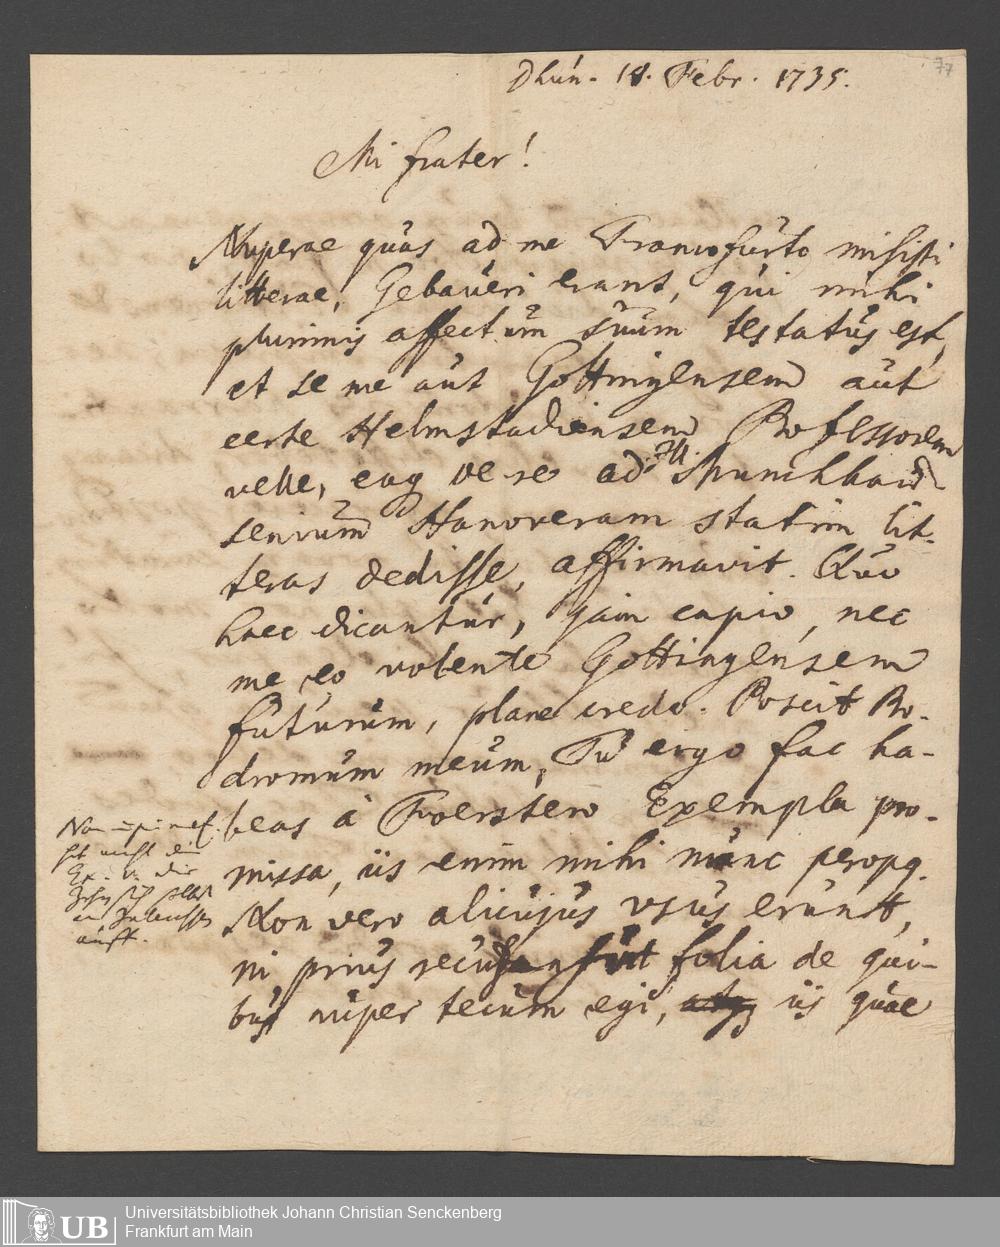 77
Dhün. 18. Febr. 1735.
Mi frater!
Nuperae quas ad me Francofurto misisti
litterae, Gebaueri erant, qui mihi
plurimis affectum suum testatus est,
et se me aut Gottingensem aut
certe Helmstadiensem Professorem
velle, eaq de re ad Munchhau-
senium Hanoveram statim lit-
teras dedisse, affirmavit. Quo
haec dicantur, jam capio, nec
me eo volente Gottingensem
futurum, plane credo. Poscit Pro-
dromum meum, Tu ergo fac ha-
beas à Foerstero Exempla pro-
missa, iis enim mihi nunc peropq.
Non vero alicujus usus erunt,
ni prius recudantur folia de qui-
bus nuper tecum egi, iis quae
Ex. die
auff.
UB
Universitätsbibliothek Johann Christian Senckenberg
Frankfurt am Main